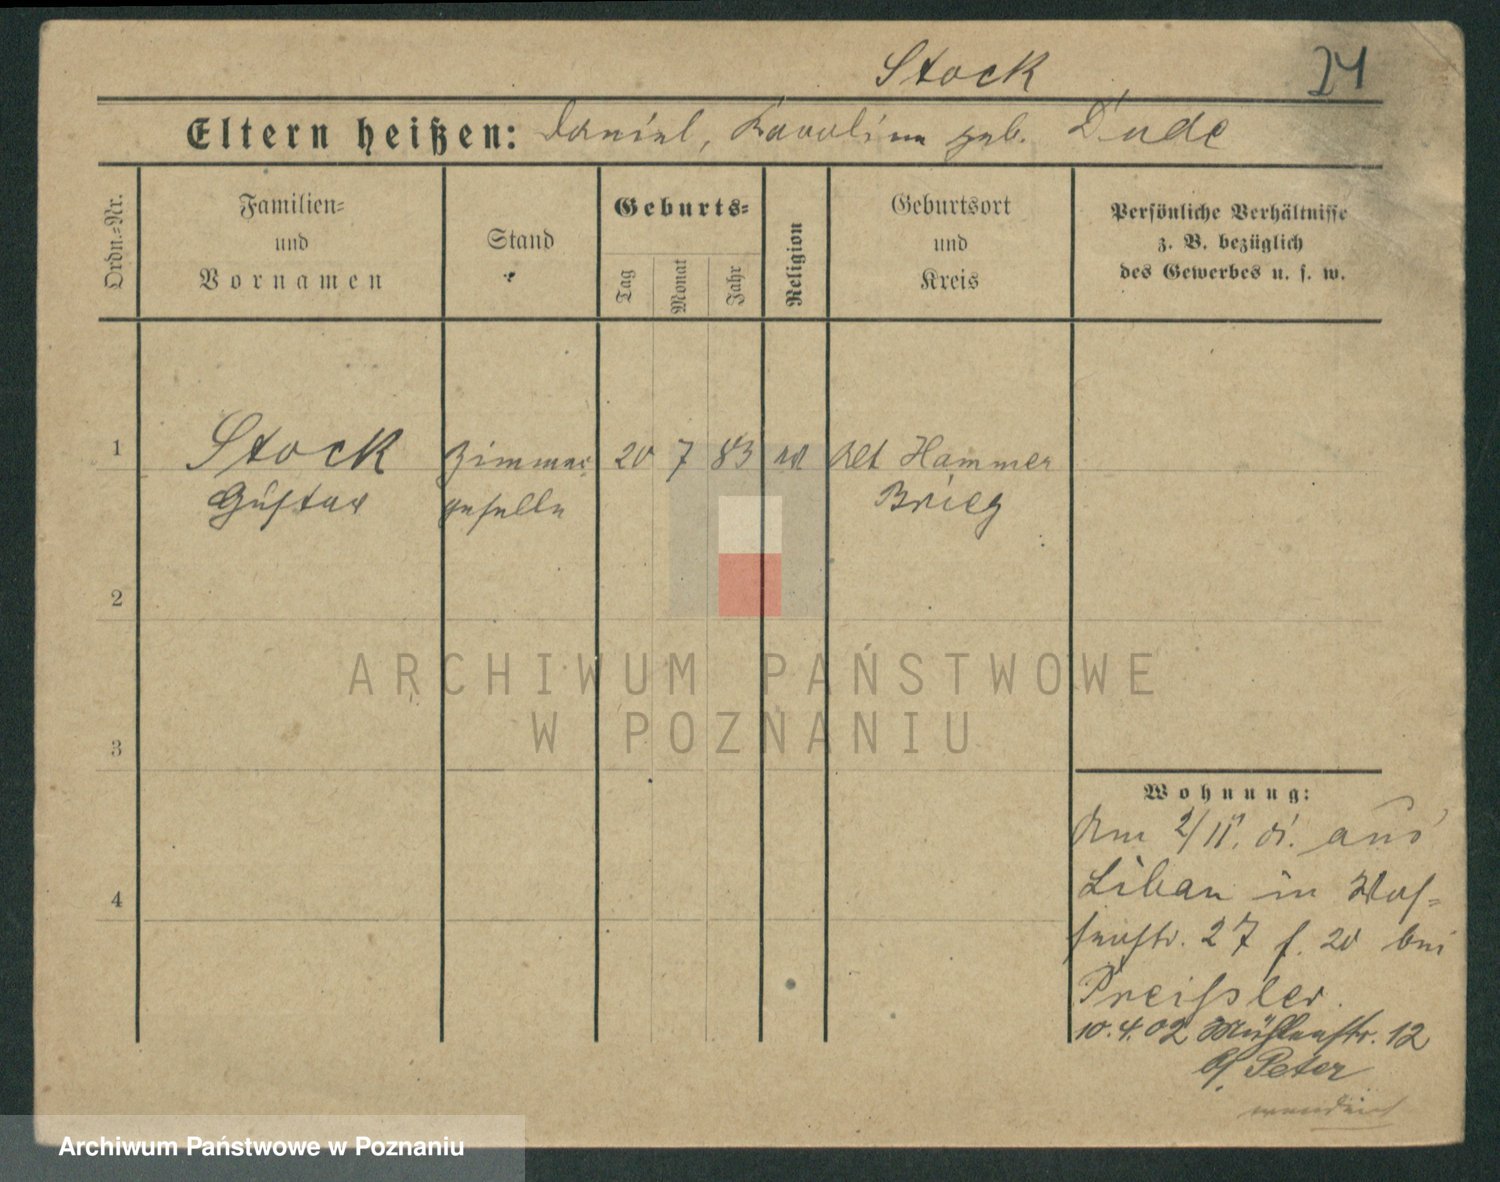 Stock
24
Eltern heißen: Daniel, Karoline geb. Dude
Ordn.-Nr.
Familien-
und
Vornamen
Stand
Geburts-
Tag
Monat
Jahr
Religion
Geburtsort
und
Kreis
Persönliche Verhältnisse
z. B. bezüglich
des Gewerbes u. s. w.
1
Stock
Gustav
Zimmer
geselle
20 7 83
Alt Hammer
Brieg
2
3
4
ARCHIWUM PAŃSTWOWE
W POZNANIU
Wohnung:
Am 2/11. aus
in
27 20 bei
Preissler.
10.4.02 Mühlenstr. 12
b/ Peter
Archiwum Państwowe w Poznaniu